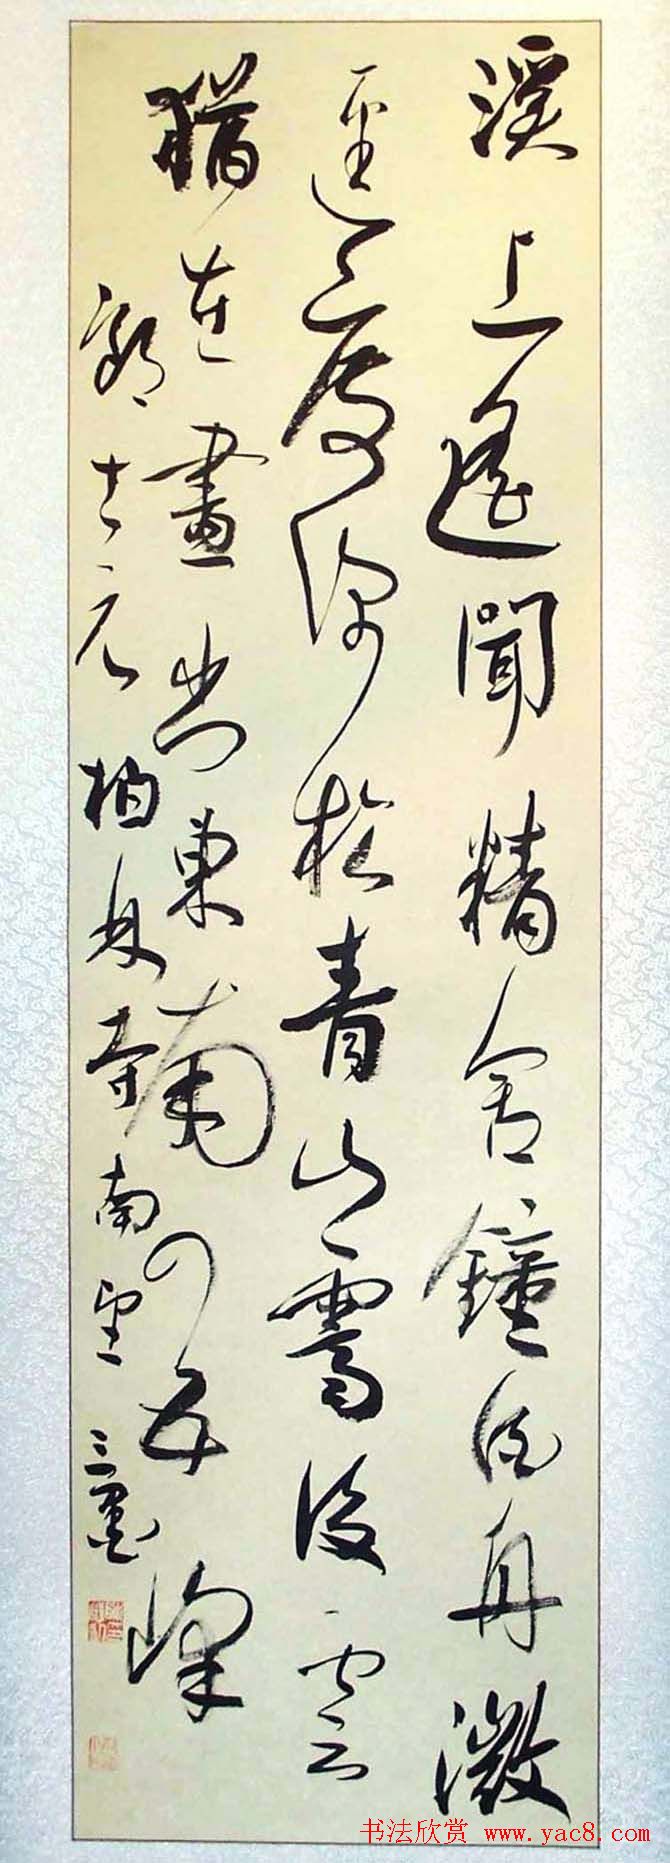 溪上遙聞精舍鐘泊舟微
逕度深松青山霽後雲
猶在畫出東南四五峰
郎士元柏林寺南望 三墨
书法欣赏 www.yac8.com